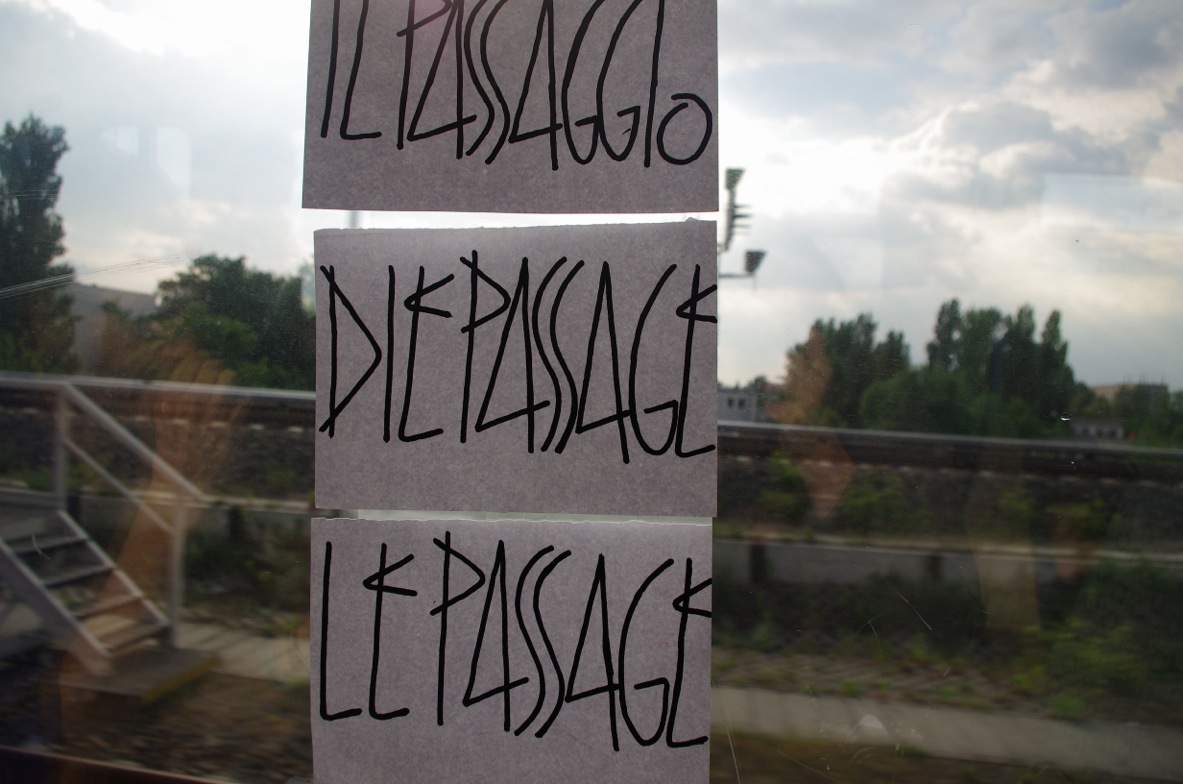 IL PASSAGGIO
DIE PASSAGE
LE PASSAGE